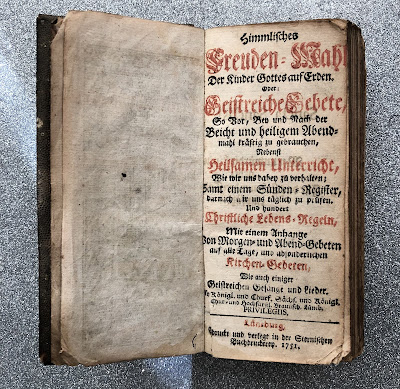 Himmlisches
Freuden-Mahl
Der Kinder Gottes auf Erden,
Oder:
Geistreiche Gebete,
So Vor, Bey und Nach der
Beicht und heiligem Abend-
mahl kräftig zu gebrauchen,
Nebenst
Heilsamen Unterricht,
Wie wir uns dabey zu verhalten;
Samt einem Sünden-Register,
darnach wir uns täglich zu prüfen.
Und hundert
Christliche Lebens-Regeln,
Mit einem Anhange
Von Morgen- und Abend-Gebeten
auf alle Tage, und absonderlichen
Kirchen-Gebeten,
Wie auch einiger
Geistreichen Gesänge und Lieder.
Königl. und Churf. Sächs. und Königl.
Chur- und Hochfürstl. Braunsch. Lüneb.
PRIVILEGIIS.
Lüneburg,
Gedruckt und verlegt in der Sternischen
Buchdruckerey. 1751.